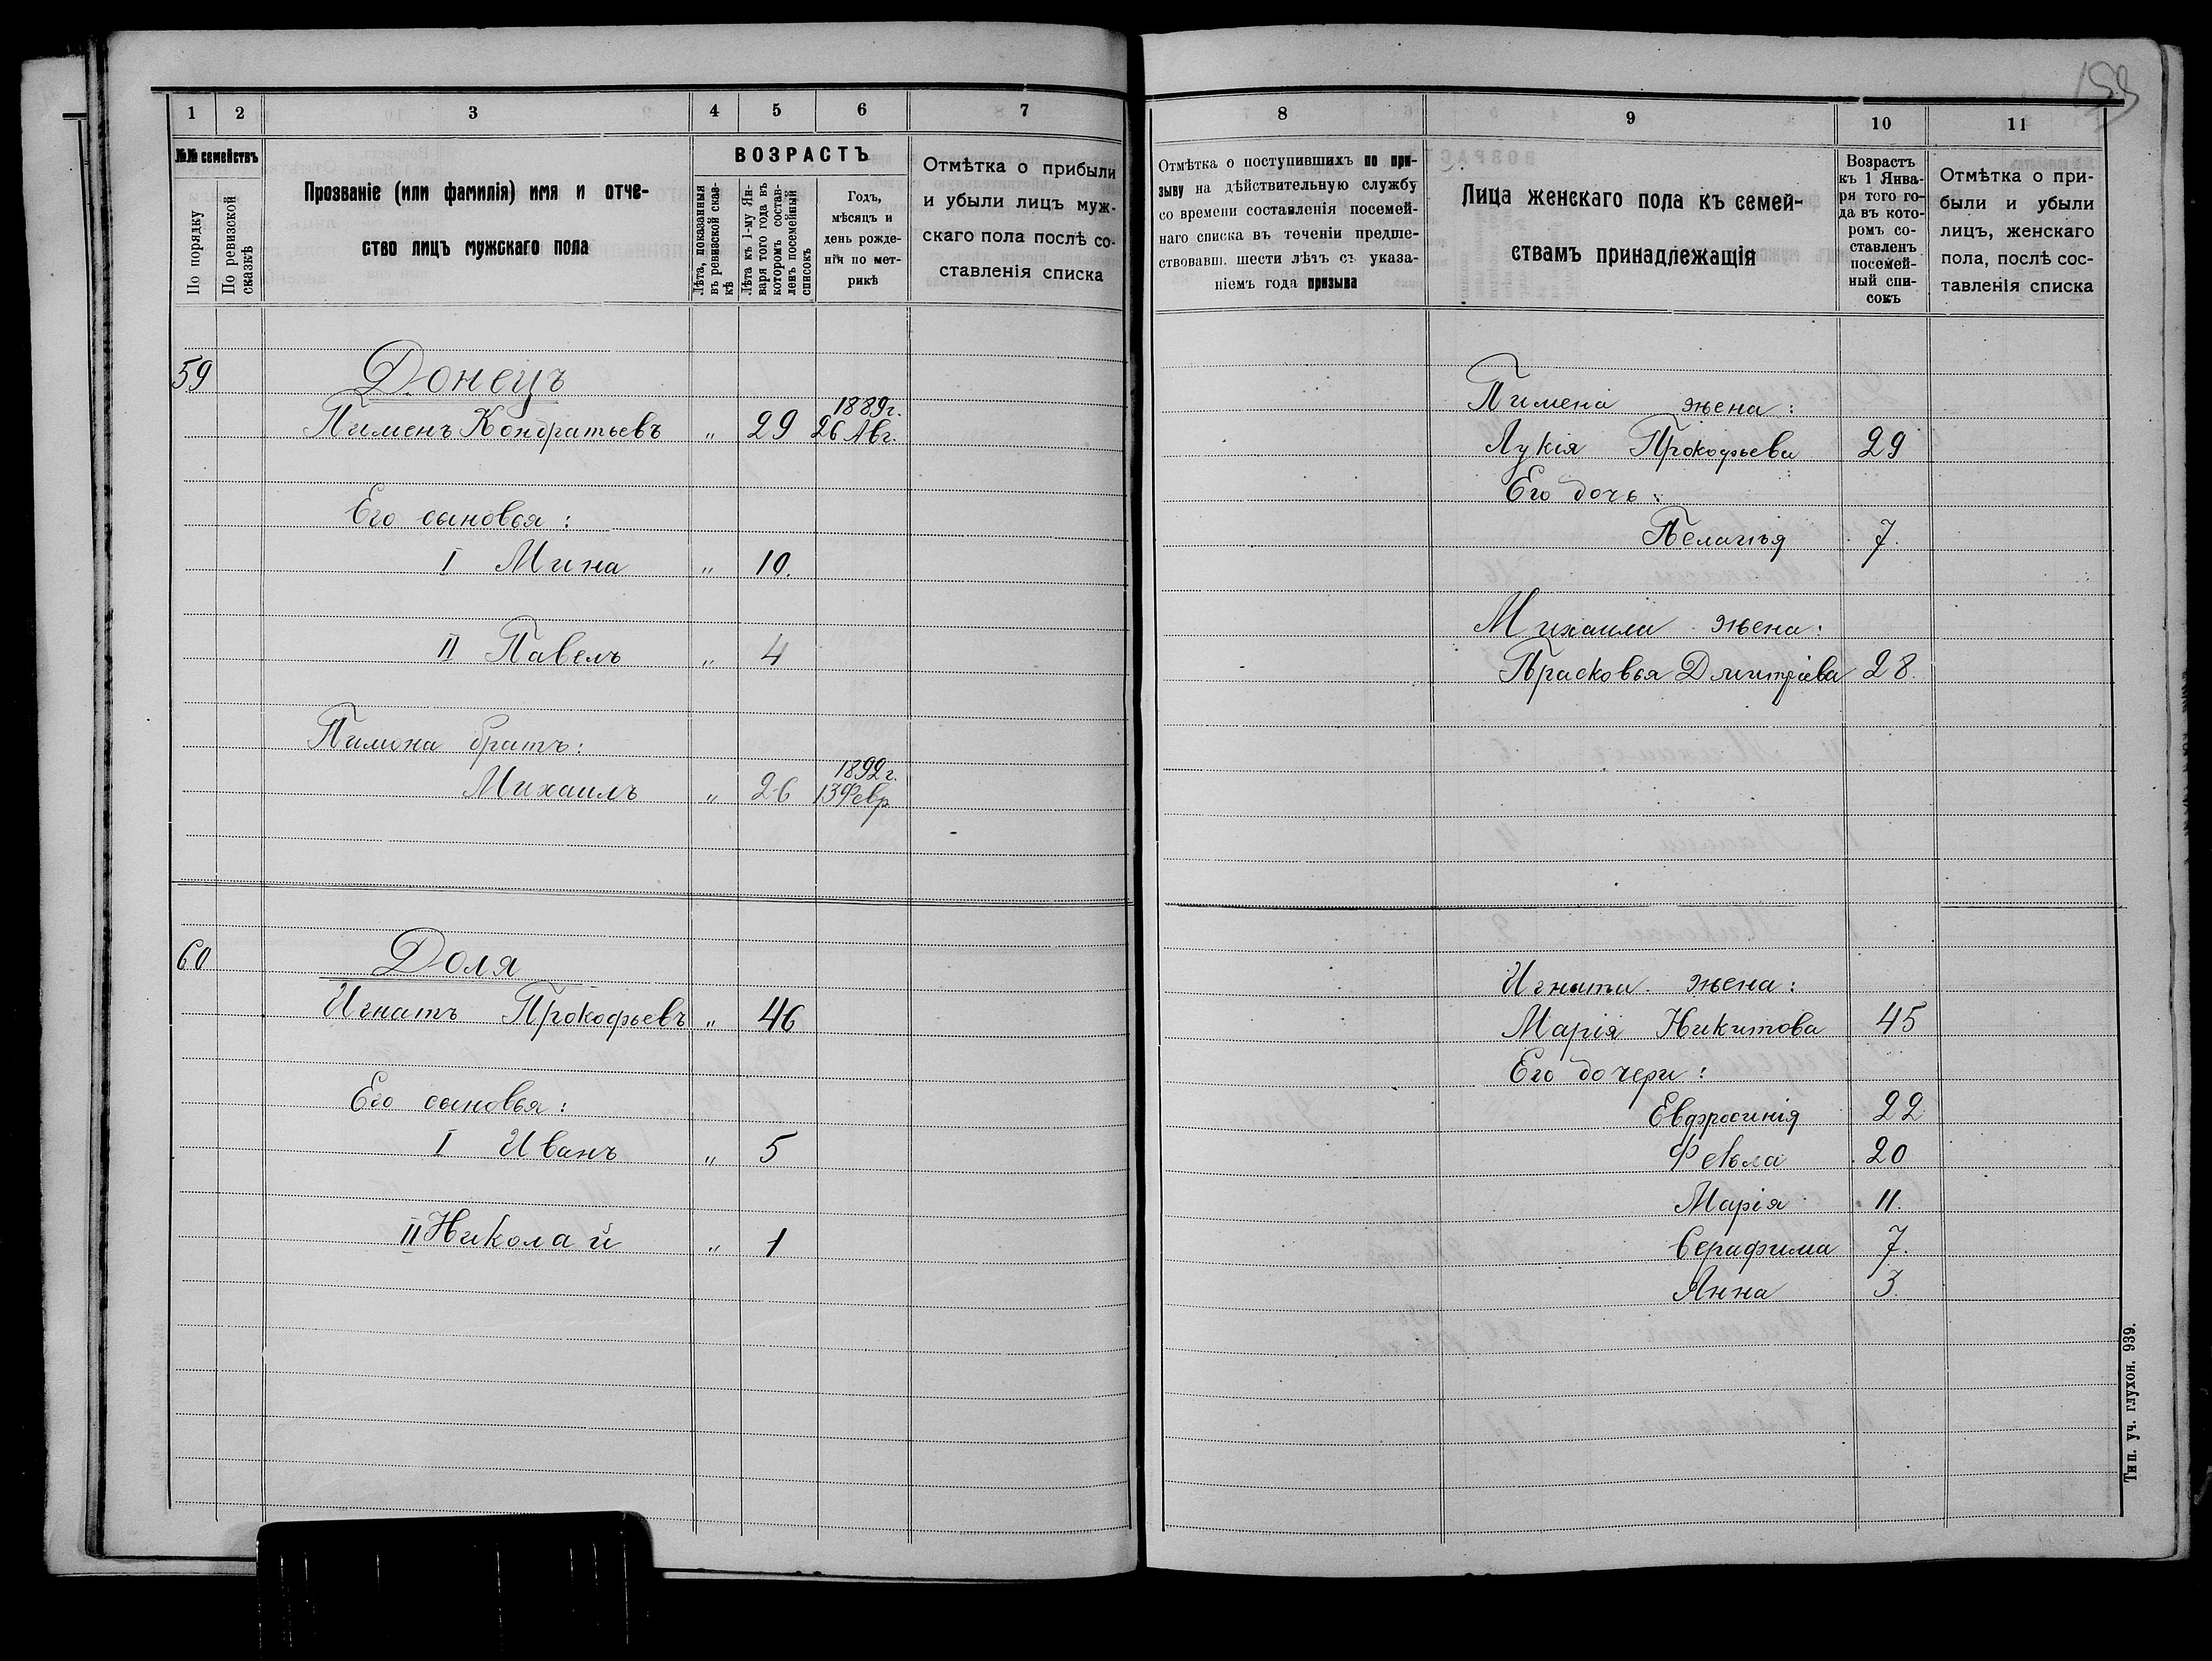 1 2 3 4 5 6 7
№№ семействъ
По порядку
По ревизской сказкѣ
Прозваніе (или фамилія) имя и отче-
ство лицъ мужскаго пола
ВОЗРАСТЪ
Лѣта, показанныя
въ ревизской сказ-
кѣ
Лѣта къ 1-му Ян-
варя того года въ
которомъ состав-
ленъ посемейный
списокъ
Годъ,
мѣсяцъ и
день рожде-
нія по мет-
рикѣ
Отмѣтка о прибыли
и убыли лицъ муж-
скаго пола послѣ со-
ставленія списка
59 Донецъ
1889г.
Пименъ Кондратьевъ " 29 26 Авг.
Его сыновья:
I Мина " 10.
II Павелъ " 4
Пимона братъ:
1892г.
Михаилъ " 26 13 Февр
60 Доля
Игнатъ Прокофьевъ " 46
Его сыновья:
I Иванъ " 5
II Николай " 1
8 9 10 11
Отмѣтка о поступившихъ по при-
зыву на дѣйствительную службу
со времени составленія посемей-
наго списка въ теченіи предше-
ствовавш. шести лѣтъ съ указа-
ніемъ года призыва
Лица женскаго пола къ семей-
ствамъ принадлежащія
Возрастъ
къ 1 Янва-
ря того го-
да въ кото-
ромъ со-
ставленъ
посемей-
ный спи-
сокъ
Отмѣтка о при-
были и убыли
лицъ, женскаго
пола, послѣ сос-
тавленія списка
Пимена жена:
Лукія Прокофьева 29
Его дочь:
Пелагія 7.
Михаила жена:
Прасковья Дмитріева 28.
Игната жена:
Марія Никитова 45
Его дочери:
Евфросинія 22
Фекла 20
Марія 11.
Серафима 7.
Анна 3.
Тип. уч. глухон. 939.